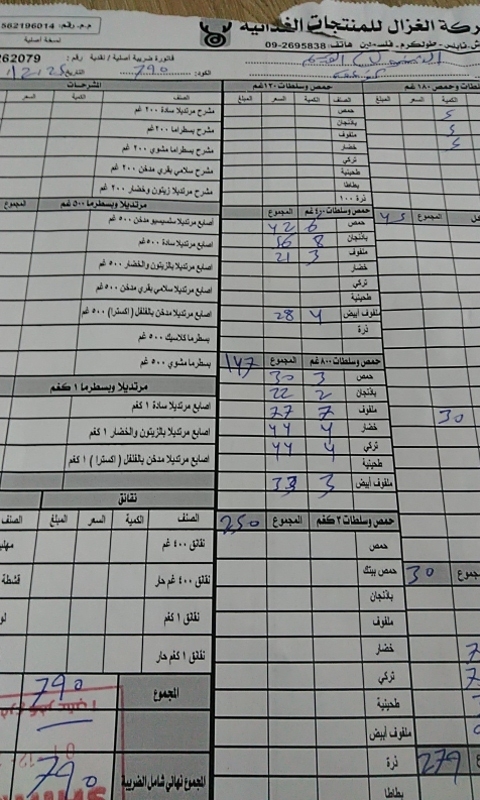 م.م. رقم: 562196014
نسخة أصلية
ركة الغزال للمنتجات الغذائية
هاتف: 2695838-09
فاتورة ضريبية اصلية / نقدية رقم :
62079
الكود: 790
التاريخ
المشروحات
السعر
الكمية
الصنف
مشرح مرتديلا سادة ٢٠٠ غم
مشرح بسطرما ٢٠٠ غم
مشرح بسطرما مشوي ٢٠٠ غم
مشرح سلامي بقري مدخن ٢٠٠ غم
مشرح مرتديلا زيتون وخضار ٢٠٠ غم
مرتديلا وبسطرما ٥٠٠ غم
المجموع
اصابع مرتديلا سادة ٥٠٠ غم
اصابع مرتديلا بالزيتون والخضار ٥٠٠ غم
اصابع مرتديلا سلامي بقري مدخن ٥٠٠ غم
اصابع مرتديلا مدخن بالفلفل (اكسترا) ٥٠٠ غم
بسطرما كلاسيك ٥٠٠ غم
بسطرما مشوي ٥٠٠ غم
مرتديلا وبسطرما ١ كغم
اصابع مرتديلا سادة ١ كغم
اصابع مرتديلا بالزيتون والخضار ١ كغم
اصابع مرتديلا مدخن بالفلفل ( اكسترا ) ١ كغم
نقانق
الصنف
الكمية
السعر
المبلغ
نقانق ٤٠٠ غم
نقانق ٤٠٠ غم حار
نقانق ١ كغم
نقانق ١ كغم حار
المجموع
790
المجموع نهائي شامل الضريبة
790
حمص وسلطات ١٢٠غم
الصنف
الكمية
السعر
المبلغ
حمص
باذنجان
ملفوف
خضار
تركي
طحينية
بطاطا
ذرة ١٠٠
حمص وسلطات ٤٠٠غم
المجموع
حمص 6 42
باذنجان 8 56
ملفوف 3 21
خضار
تركي
طحينية
ملفوف أبيض 4 28
ذرة
حمص وسلطات ٨٠٠غم
المجموع
147
حمص 3 30
باذنجان 2 22
ملفوف 7 77
خضار 4 44
تركي 4 44
طحينية
ملفوف أبيض 3 33
حمص وسلطات ٣ كغم
المجموع
250
حمص
حمص بيتك
باذنجان
ملفوف
خضار
تركي
طحينية
ملفوف أبيض
ذرة
بطاطا
١٨٠ غم
الكمية
السعر
المبلغ
5
5
5
المجموع
45
30
30
7
7
279